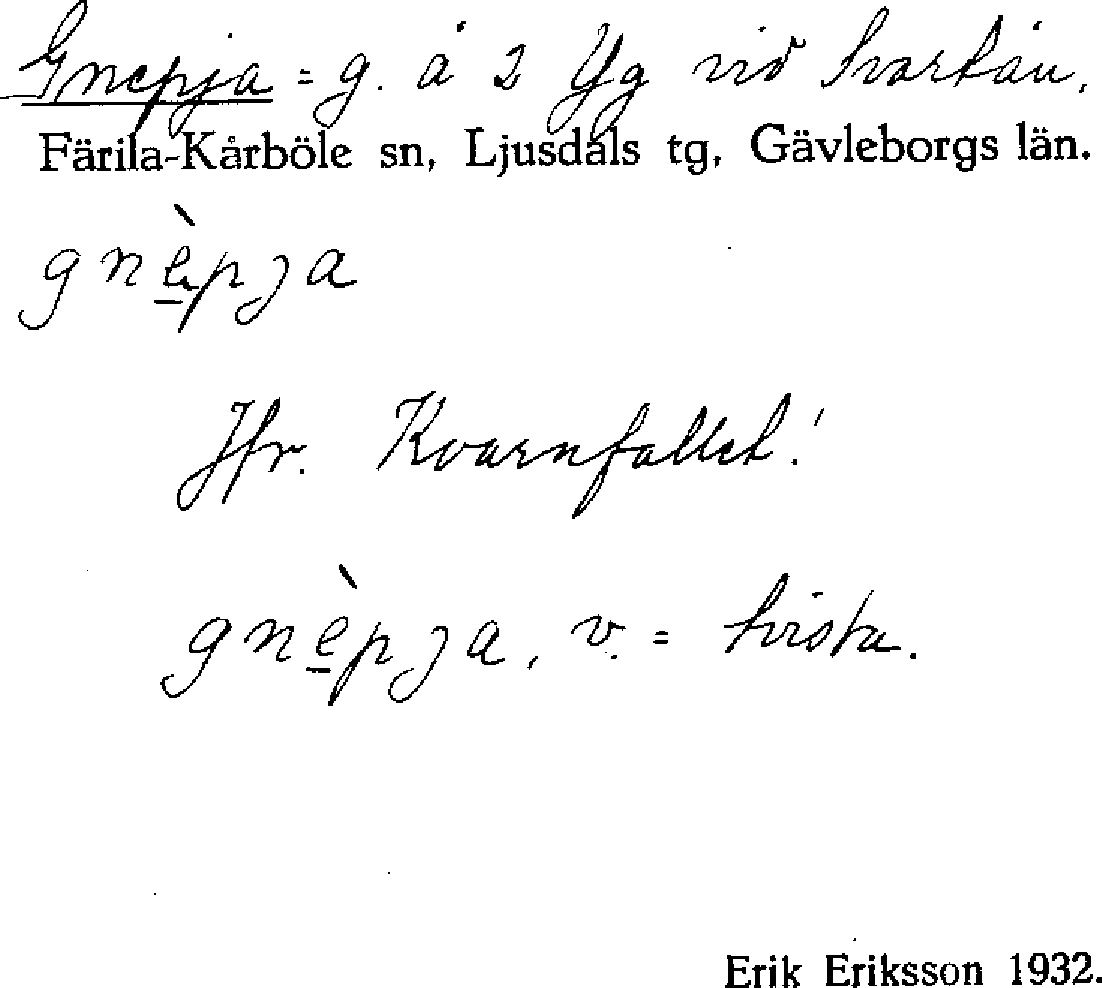 Gnepja = g. å 2 Yg vid Svartån.
Färila-Kårböle sn, Ljusdals tg, Gävleborgs län.
gnèpja
Jfr. Kvarnfallet!
gnèpja, v. = tvista.
Erik Eriksson 1932.